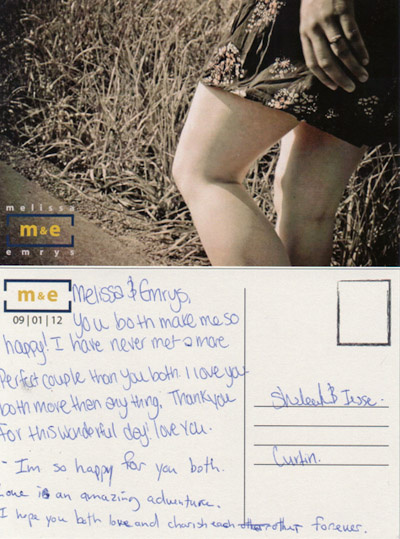 melissa
m&e
emrys
m&e
09|01|12
Melissa & Emrys,
You both make me so
happy! I have never met a more
Perfect couple than you both. I love you
both more than anything. Thank you
for this wonderful day! love you.
- Im so happy for you both.
Love is an amazing adventure.
I hope you both love and charish each other forever.
& Jesse.
Curtin.